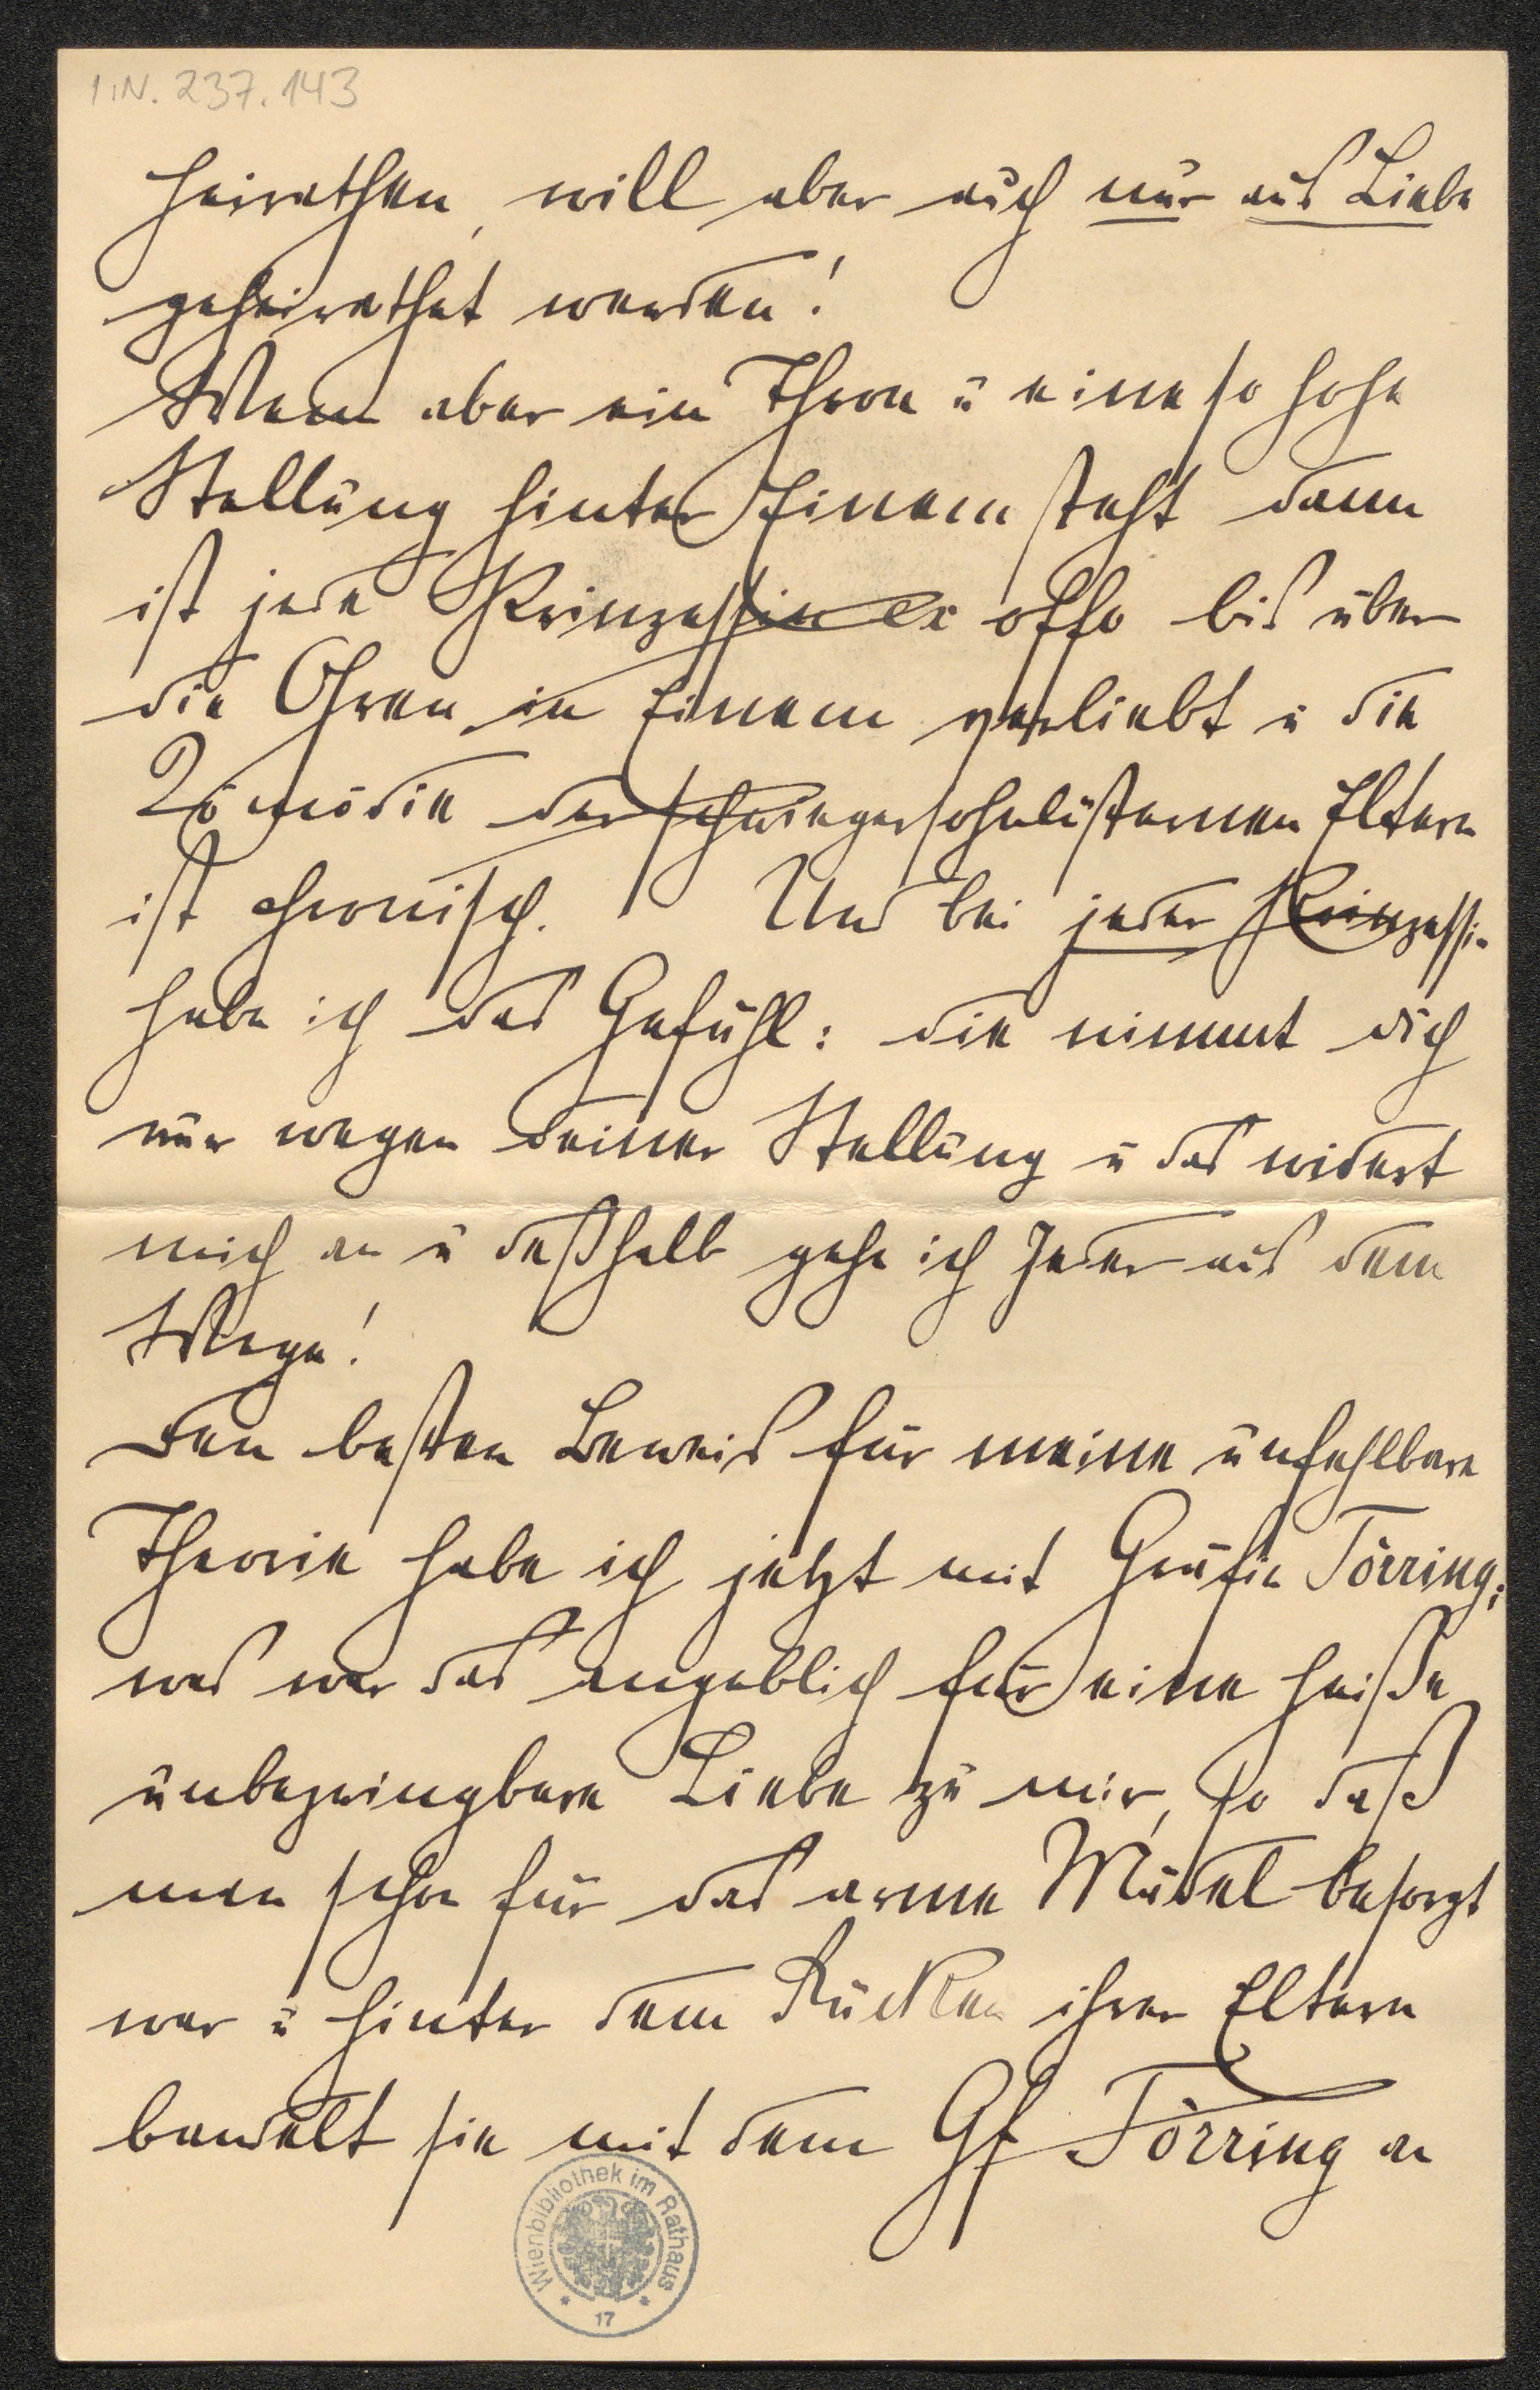 I.N. 237.143
heirathen, will aber auch nur aus Liebe
geheirathet werden!
Wenn aber ein Thron u eine so hohe
Stellung hinter Einem steht dann
ist jede Prinzessin ex offo bis über
die Ohren in Einem verliebt u die
Komödie der schwiegersohnlüsternen Eltern
ist chronisch. Und bei jeder Prinzessin
habe ich das Gefühl: die nimmt dich
nur wegen deiner Stellung u das widert
mich an u deßhalb gehe ich Jeder aus dem
Wege!
Den besten Beweis für meine unfehlbare
Theorie habe ich jetzt mit Gräfin Törring;
was war das angeblich für eine heiße
unbezwingbare Liebe zu mir, so daß
man schon für das arme Mädel besorgt
war u hinter dem Rücken ihrer Eltern
bandelt sie mit dem Gf Törring an
Wienbibliothek im Rathaus
* 17 *